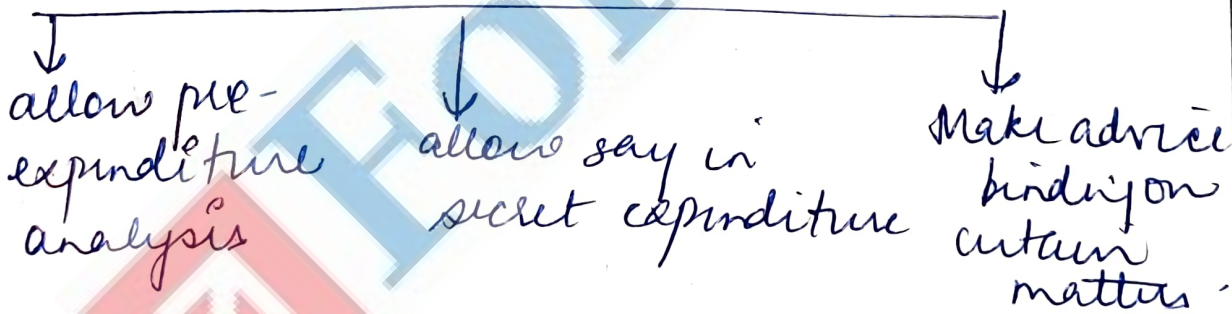 allow pre-
expenditure
analysis
allow say in
secret expenditure
Make advice
binding on
certain
matters.